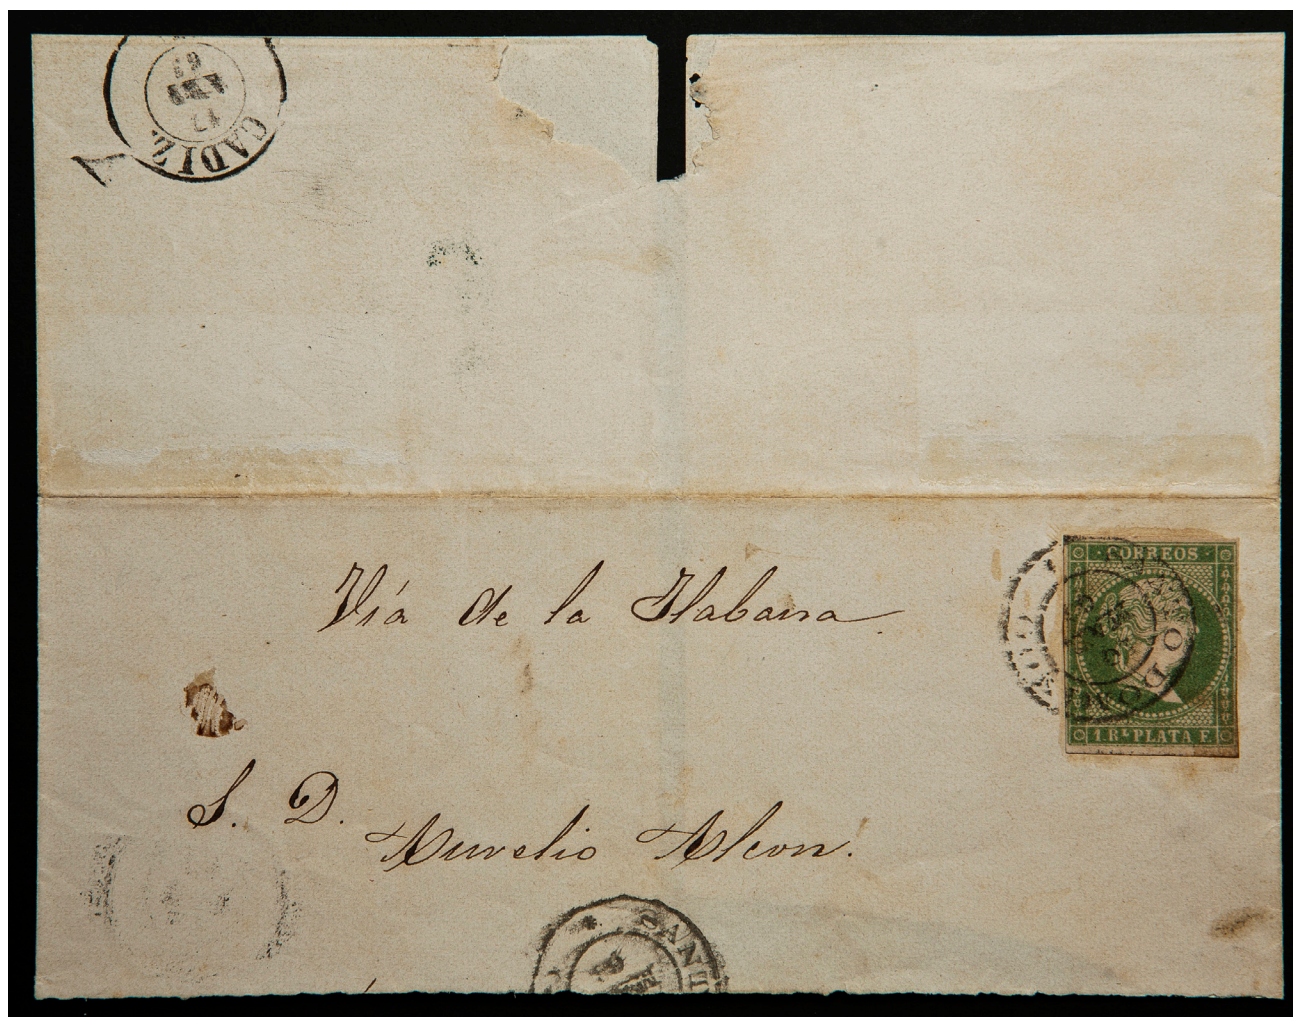 CADIZ
17
CORREOS
1. RL PLATA F.
Vía de la Habana.
S. D.
Aurelio Alcon.
SANT